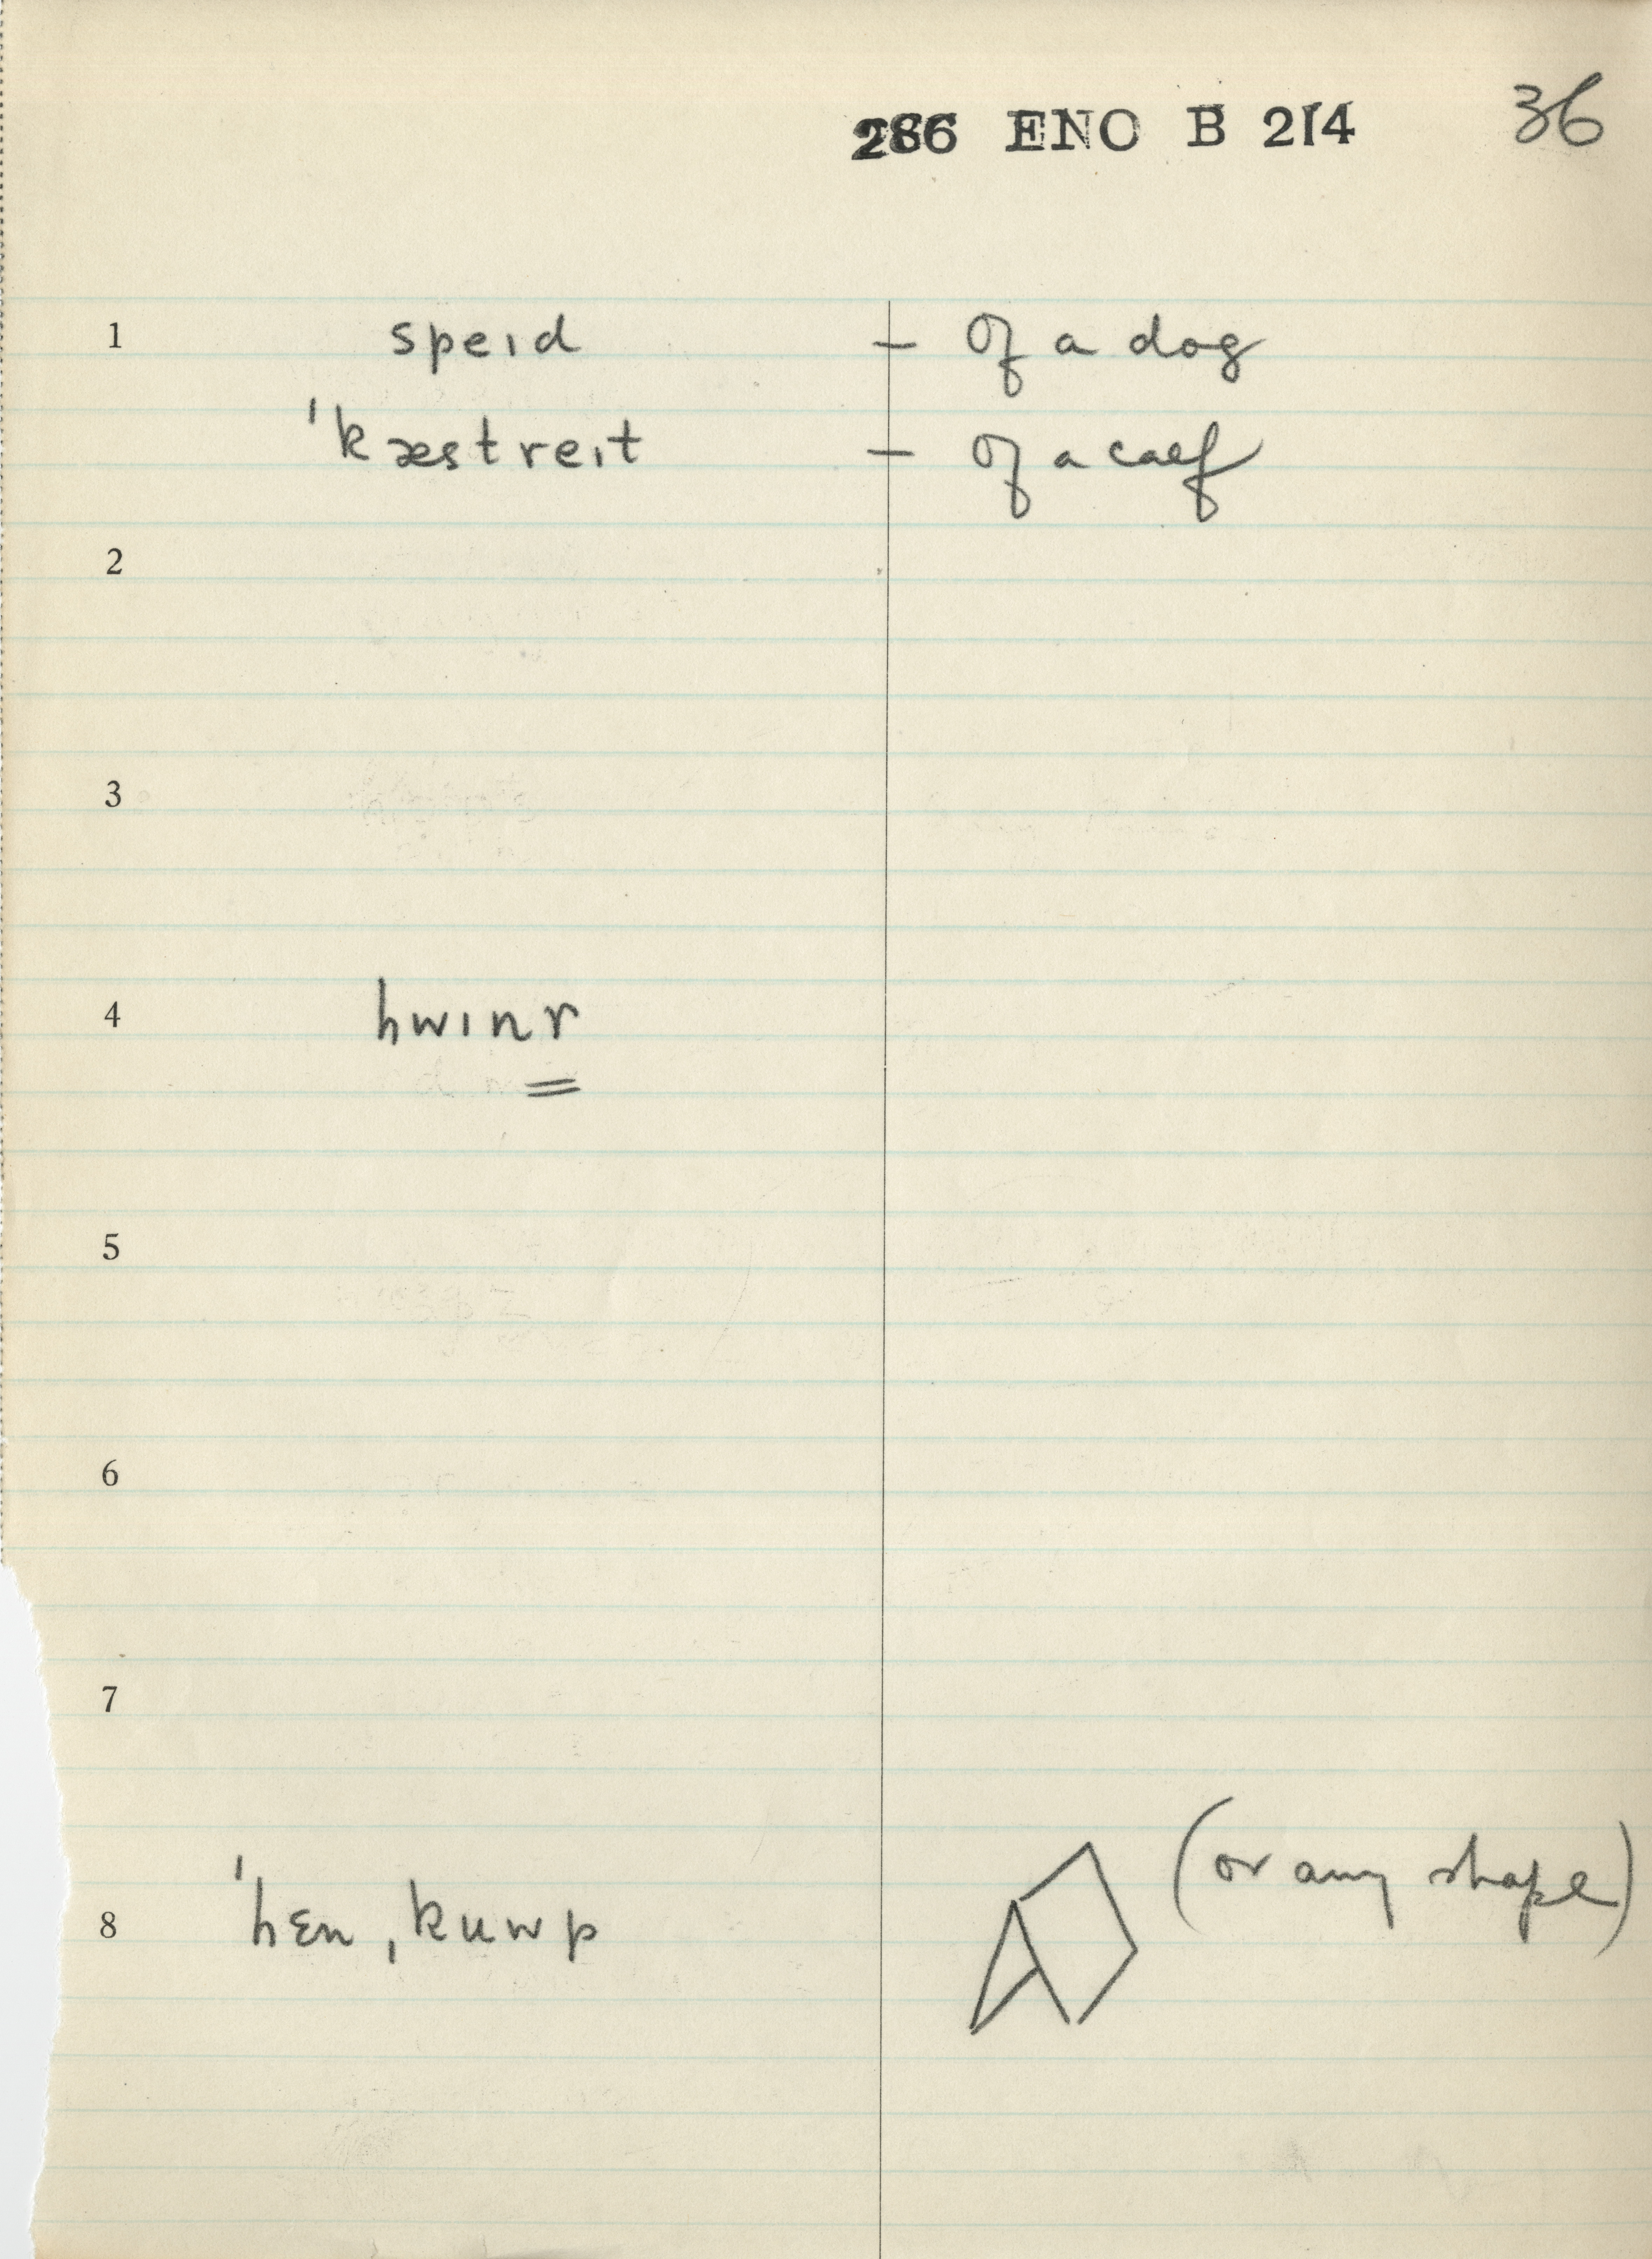 286 ENO B 214 36
1 speɪd – of a dog
'kæstreɪt – of a calf
2
3
4 hwɪnr
5
6
7
8 'hɛn ˌkuwp (or any shape)